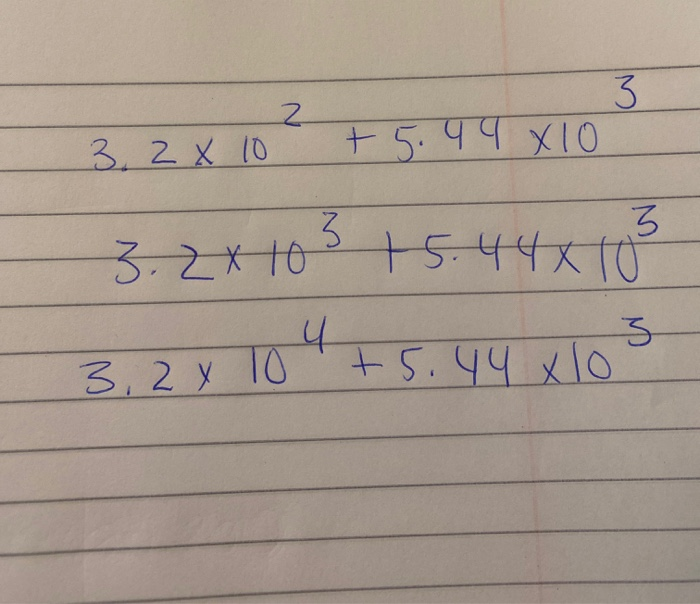 3.2 × 10² + 5.44 ×10³
3.2 × 10³ + 5.44 × 10³
3.2 × 10⁴ + 5.44 ×10³